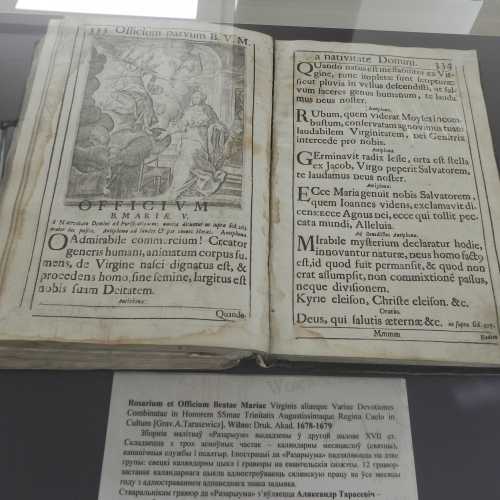 333 Officium parvum B. V. M.
OFFICIVM
B. MARIÆ V.
O Admirabile commercium! Creator
generis humani, animatum corpus su-
mens, de Virgine nasci dignatus est, &
procedens homo, sine semine, largitus est
nobis suam Deitatem.
Antiphona:
Quando
a nativitate Domini. 334
QUando natus est ineffabiliter ex Vir-
gine, tunc impletæ sunt scripturæ:
sicut pluvia in vellus descendisti, ut sal-
vum faceres genus humanum, te lauda-
mus Deus noster.
Antiphona.
RUbum, quem viderat Moyses incom-
bustum, conservatam agnovimus tuam
laudabilem Virginitatem, Dei Genitrix
intercede pro nobis.
Antiphona.
GErminavit radix Iesse, orta est stella
ex Jacob, Virgo peperit Salvatorem,
te laudamus Deus noster.
Antiphona:
ECce Maria genuit nobis Salvatorem,
quem Ioannes videns, exclamavit di-
cens: ecce Agnus Dei, ecce qui tollit pec-
cata mundi, Alleluia.
Ad Benedictus. Antiphona.
MIrabile mysterium declaratur hodie,
innovantur naturæ, Deus homo factus
est, id quod fuit permansit, & quod non
erat assumpsit, non commixtionē passus,
neque divisionem.
Kyrie eleison, Christe eleison. &c.
Oratio.
Deus, qui salutis æternæ &c. ut supra fol.
Mmmm
Rosarium et Officium Beatae Mariae Virginis aliaeque Variae Devotiones
Combinatae in Honorem SSmae Trinitatis Augustissimaeque Regina Caelo in
Cultum [Grav.A.Tarasewicz]. Wilno: Druk. Akad. 1678-1679
Зборнік малітваў «Разарыум» выдадзены ў другой палове XVII ст.
Складаецца з трох асноўных частак – каляндарны месяцаслоў (святцы),
кананічныя службы і псалтыр. Ілюстрацыі да «Разарыума» падзяляюцца на дзве
групы: свецкі каляндарны цыкл і гравюры на евангельскія сюжэты. 12 гравюр-
застаўк каляндарнага цыкла адлюстроўваюць сялянскую працу ва ўсе месяцы
году з адлюстраваннем адпаведнага знака задыяка.
Стваральнікам гравюр да «Разарыума» з'яўляецца Аляксандр Тарасевіч –